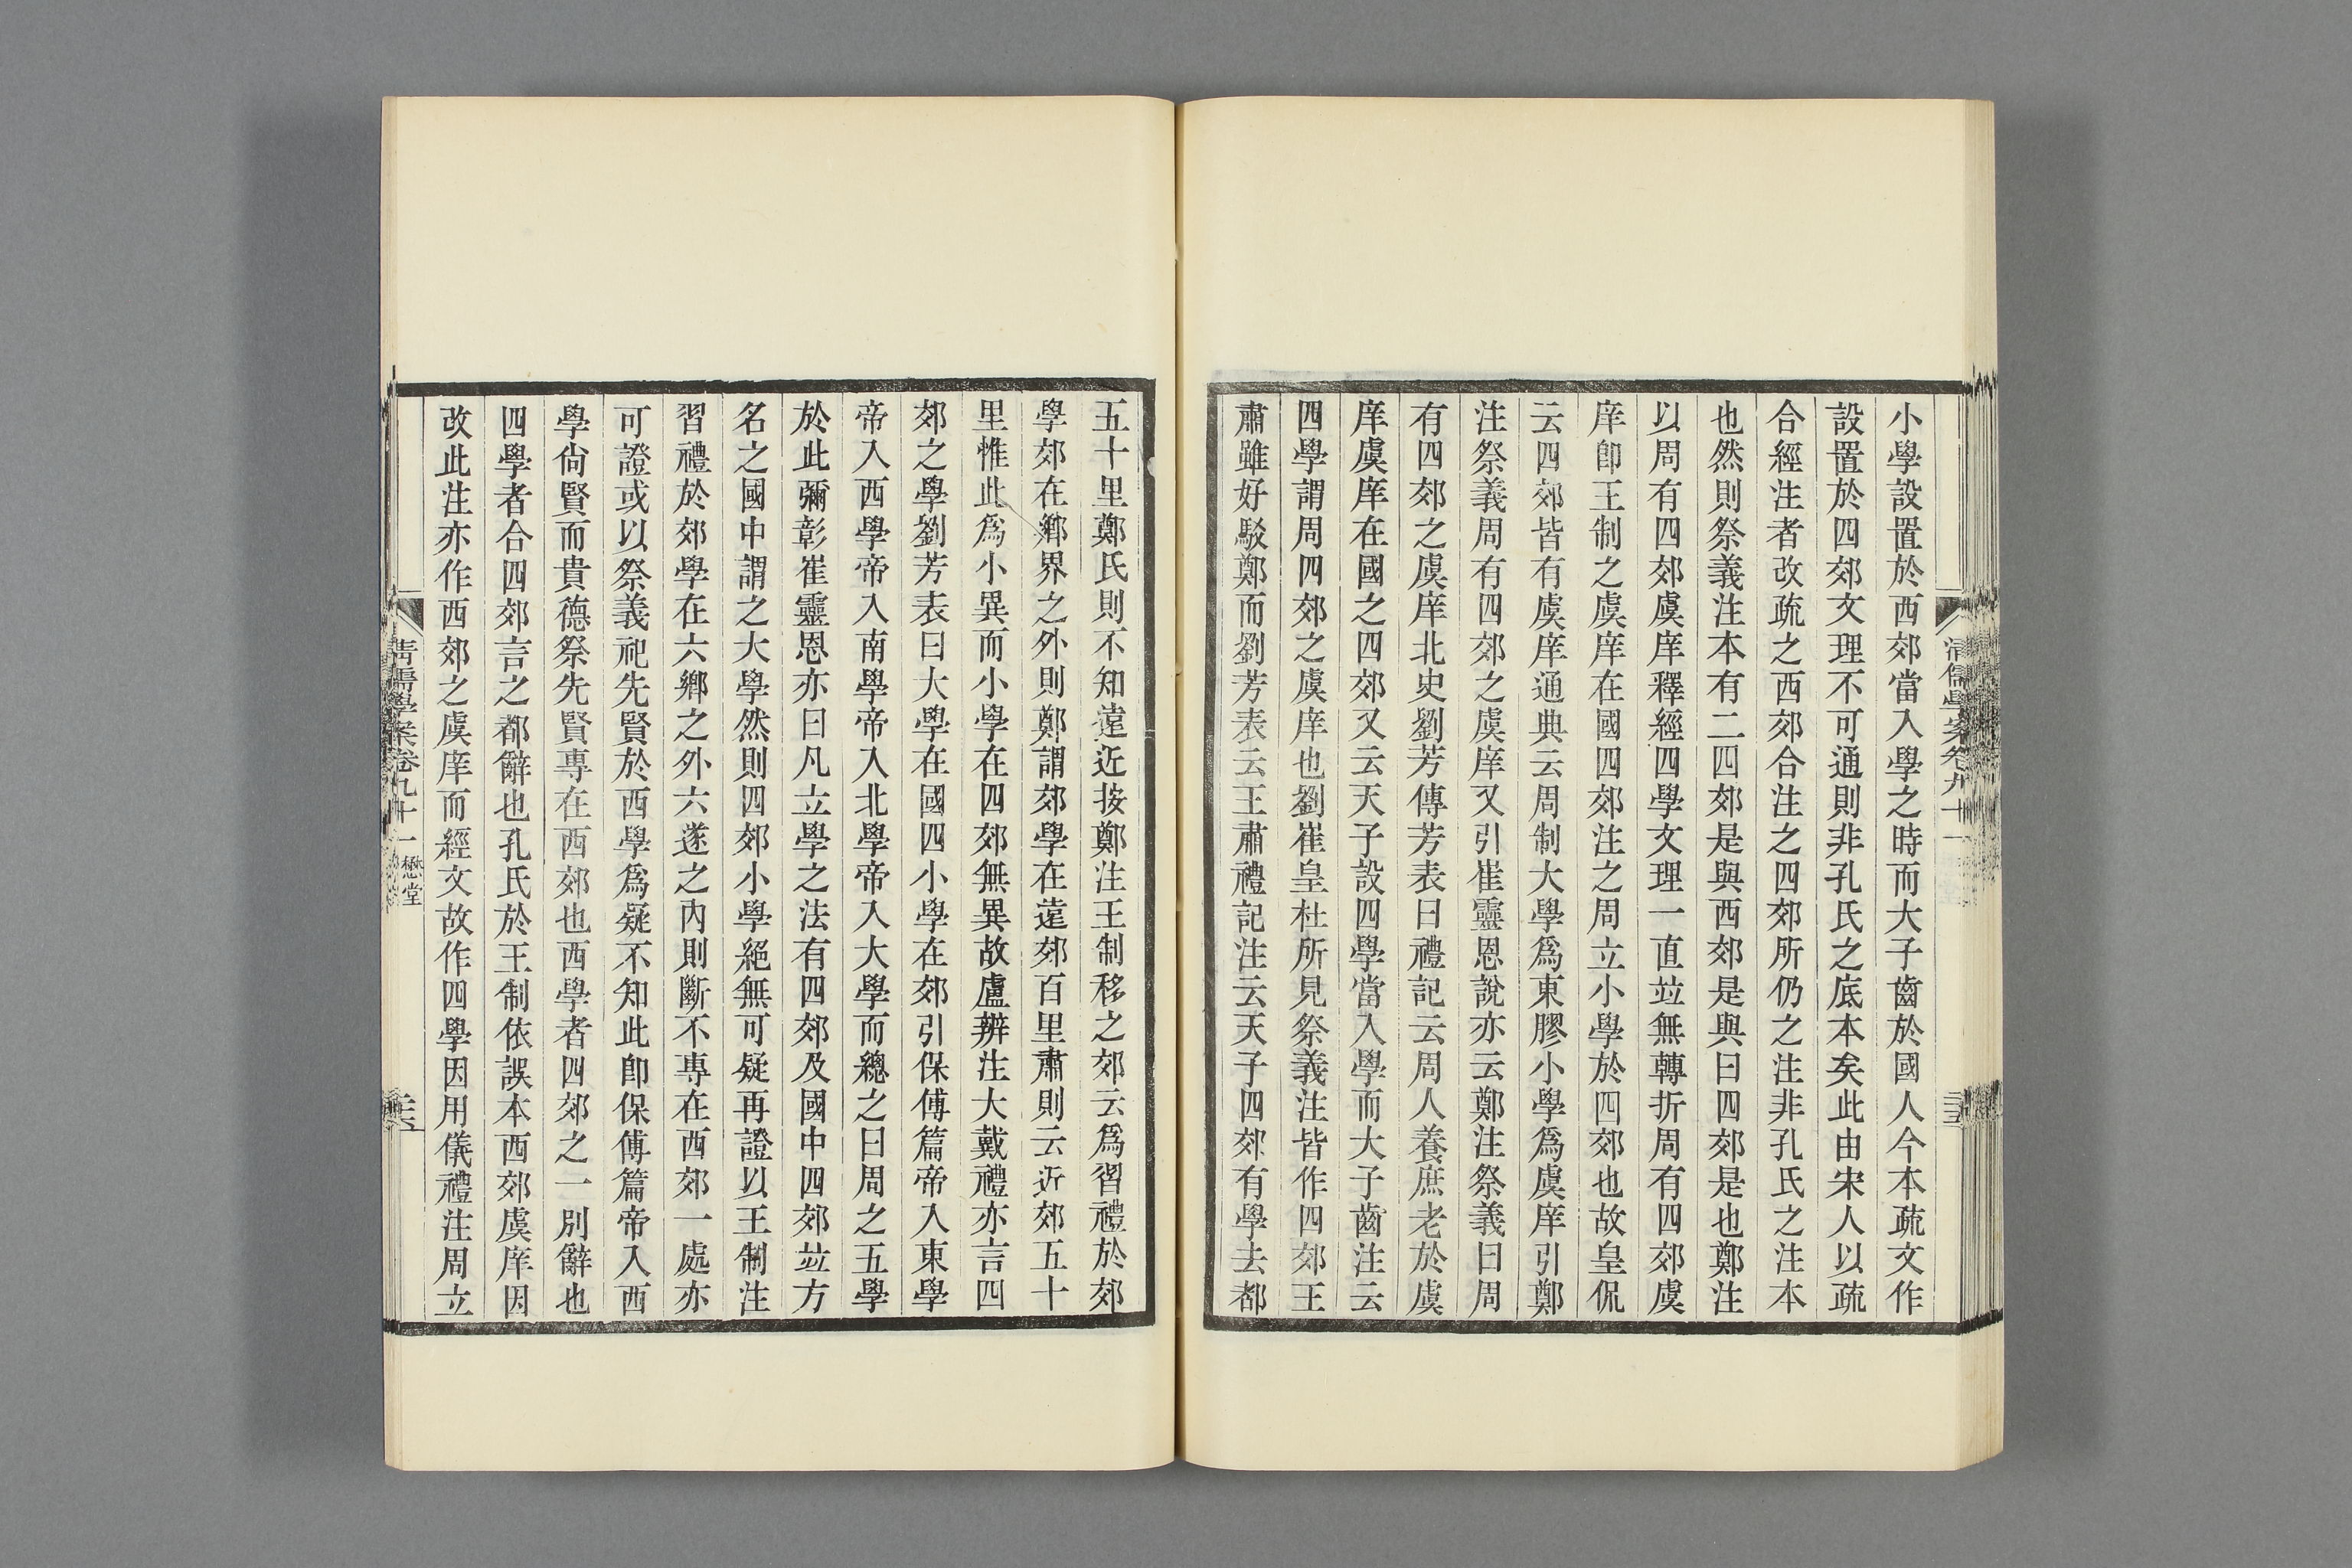 清儒學案卷九十一
小學設置於西郊當入學之時而大子齒於國人今本疏文作
設置於四郊文理不可通則非孔氏之底本矣此由宋人以疏
合經注者改疏之西郊合注之四郊所仍之注非孔氏之注本
也然則祭義注本有二四郊是與西郊是與曰四郊是也鄭注
以周有四郊虞庠釋經四學文理一直竝無轉折周有四郊虞
庠卽王制之虞庠在國四郊注之周立小學於四郊也故皇侃
云四郊皆有虞庠通典云周制大學爲東膠小學爲虞庠引鄭
注祭義周有四郊之虞庠又引崔靈恩說亦云鄭注祭義曰周
有四郊之虞庠北史劉芳傳芳表曰禮記云周人養庶老於虞
庠虞庠在國之四郊又云天子設四學當入學而大子齒注云
四學謂周四郊之虞庠也劉崔皇杜所見祭義注皆作四郊王
肅雖好駁鄭而劉芳表云王肅禮記注云天子四郊有學去都
五十里鄭氏則不知遠近按鄭注王制移之郊云爲習禮於郊
學郊在鄕界之外則鄭謂郊學在遠郊百里肅則云近郊五十
里惟此爲小異而小學在四郊無異故盧辨注大戴禮亦言四
郊之學劉芳表曰大學在國四小學在郊引保傅篇帝入東學
帝入西學帝入南學帝入北學帝入大學而總之曰周之五學
於此彌彰崔靈恩亦曰凡立學之法有四郊及國中四郊竝方
名之國中謂之大學然則四郊小學絕無可疑再證以王制注
習禮於郊學在六鄕之外六遂之內則斷不專在西郊一處亦
可證或以祭義祀先賢於西學爲疑不知此卽保傅篇帝入西
學尙賢而貴德祭先賢專在西郊也西學者四郊之一別辭也
四學者合四郊言之都辭也孔氏於王制依誤本西郊虞庠因
改此注亦作西郊之虞庠而經文故作四學因用儀禮注周立
清儒學案卷九十一 懋堂